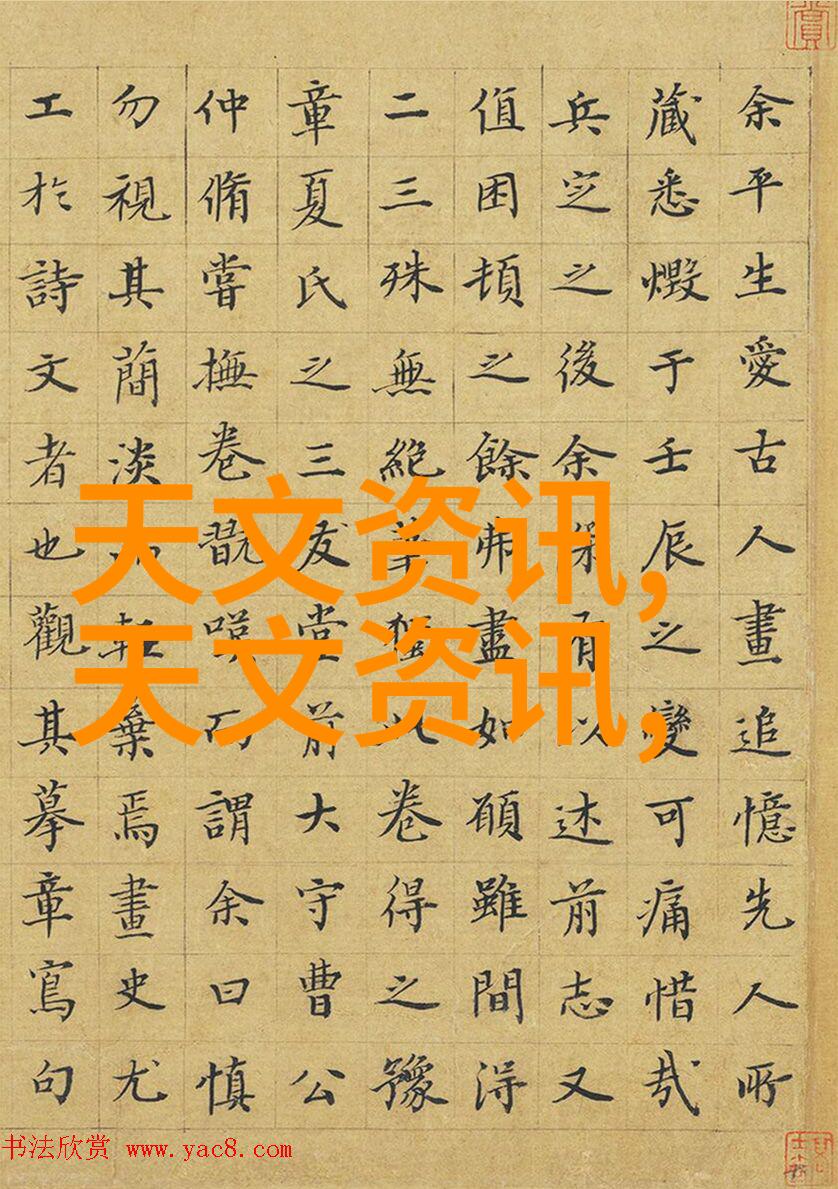 余平生愛古人畫追憶先人所
藏悉燬于壬辰之變可痛惜哉
兵定之後余有以述前志又
值困頓之餘弗盡如願雖間得
二三殊無絕筆此卷得之豫
章夏氏之三友堂前大守曹公
仲脩嘗撫卷翫嘆而謂余曰慎
勿視其簡淡而輕棄焉畫史尤
工於詩文者也觀其摹章寫句
天文资讯,
天文资讯,
书法欣赏 www.yac8.com